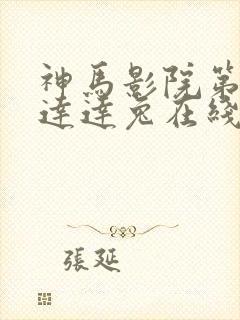 神馬影院第
達達兔在綫
張延